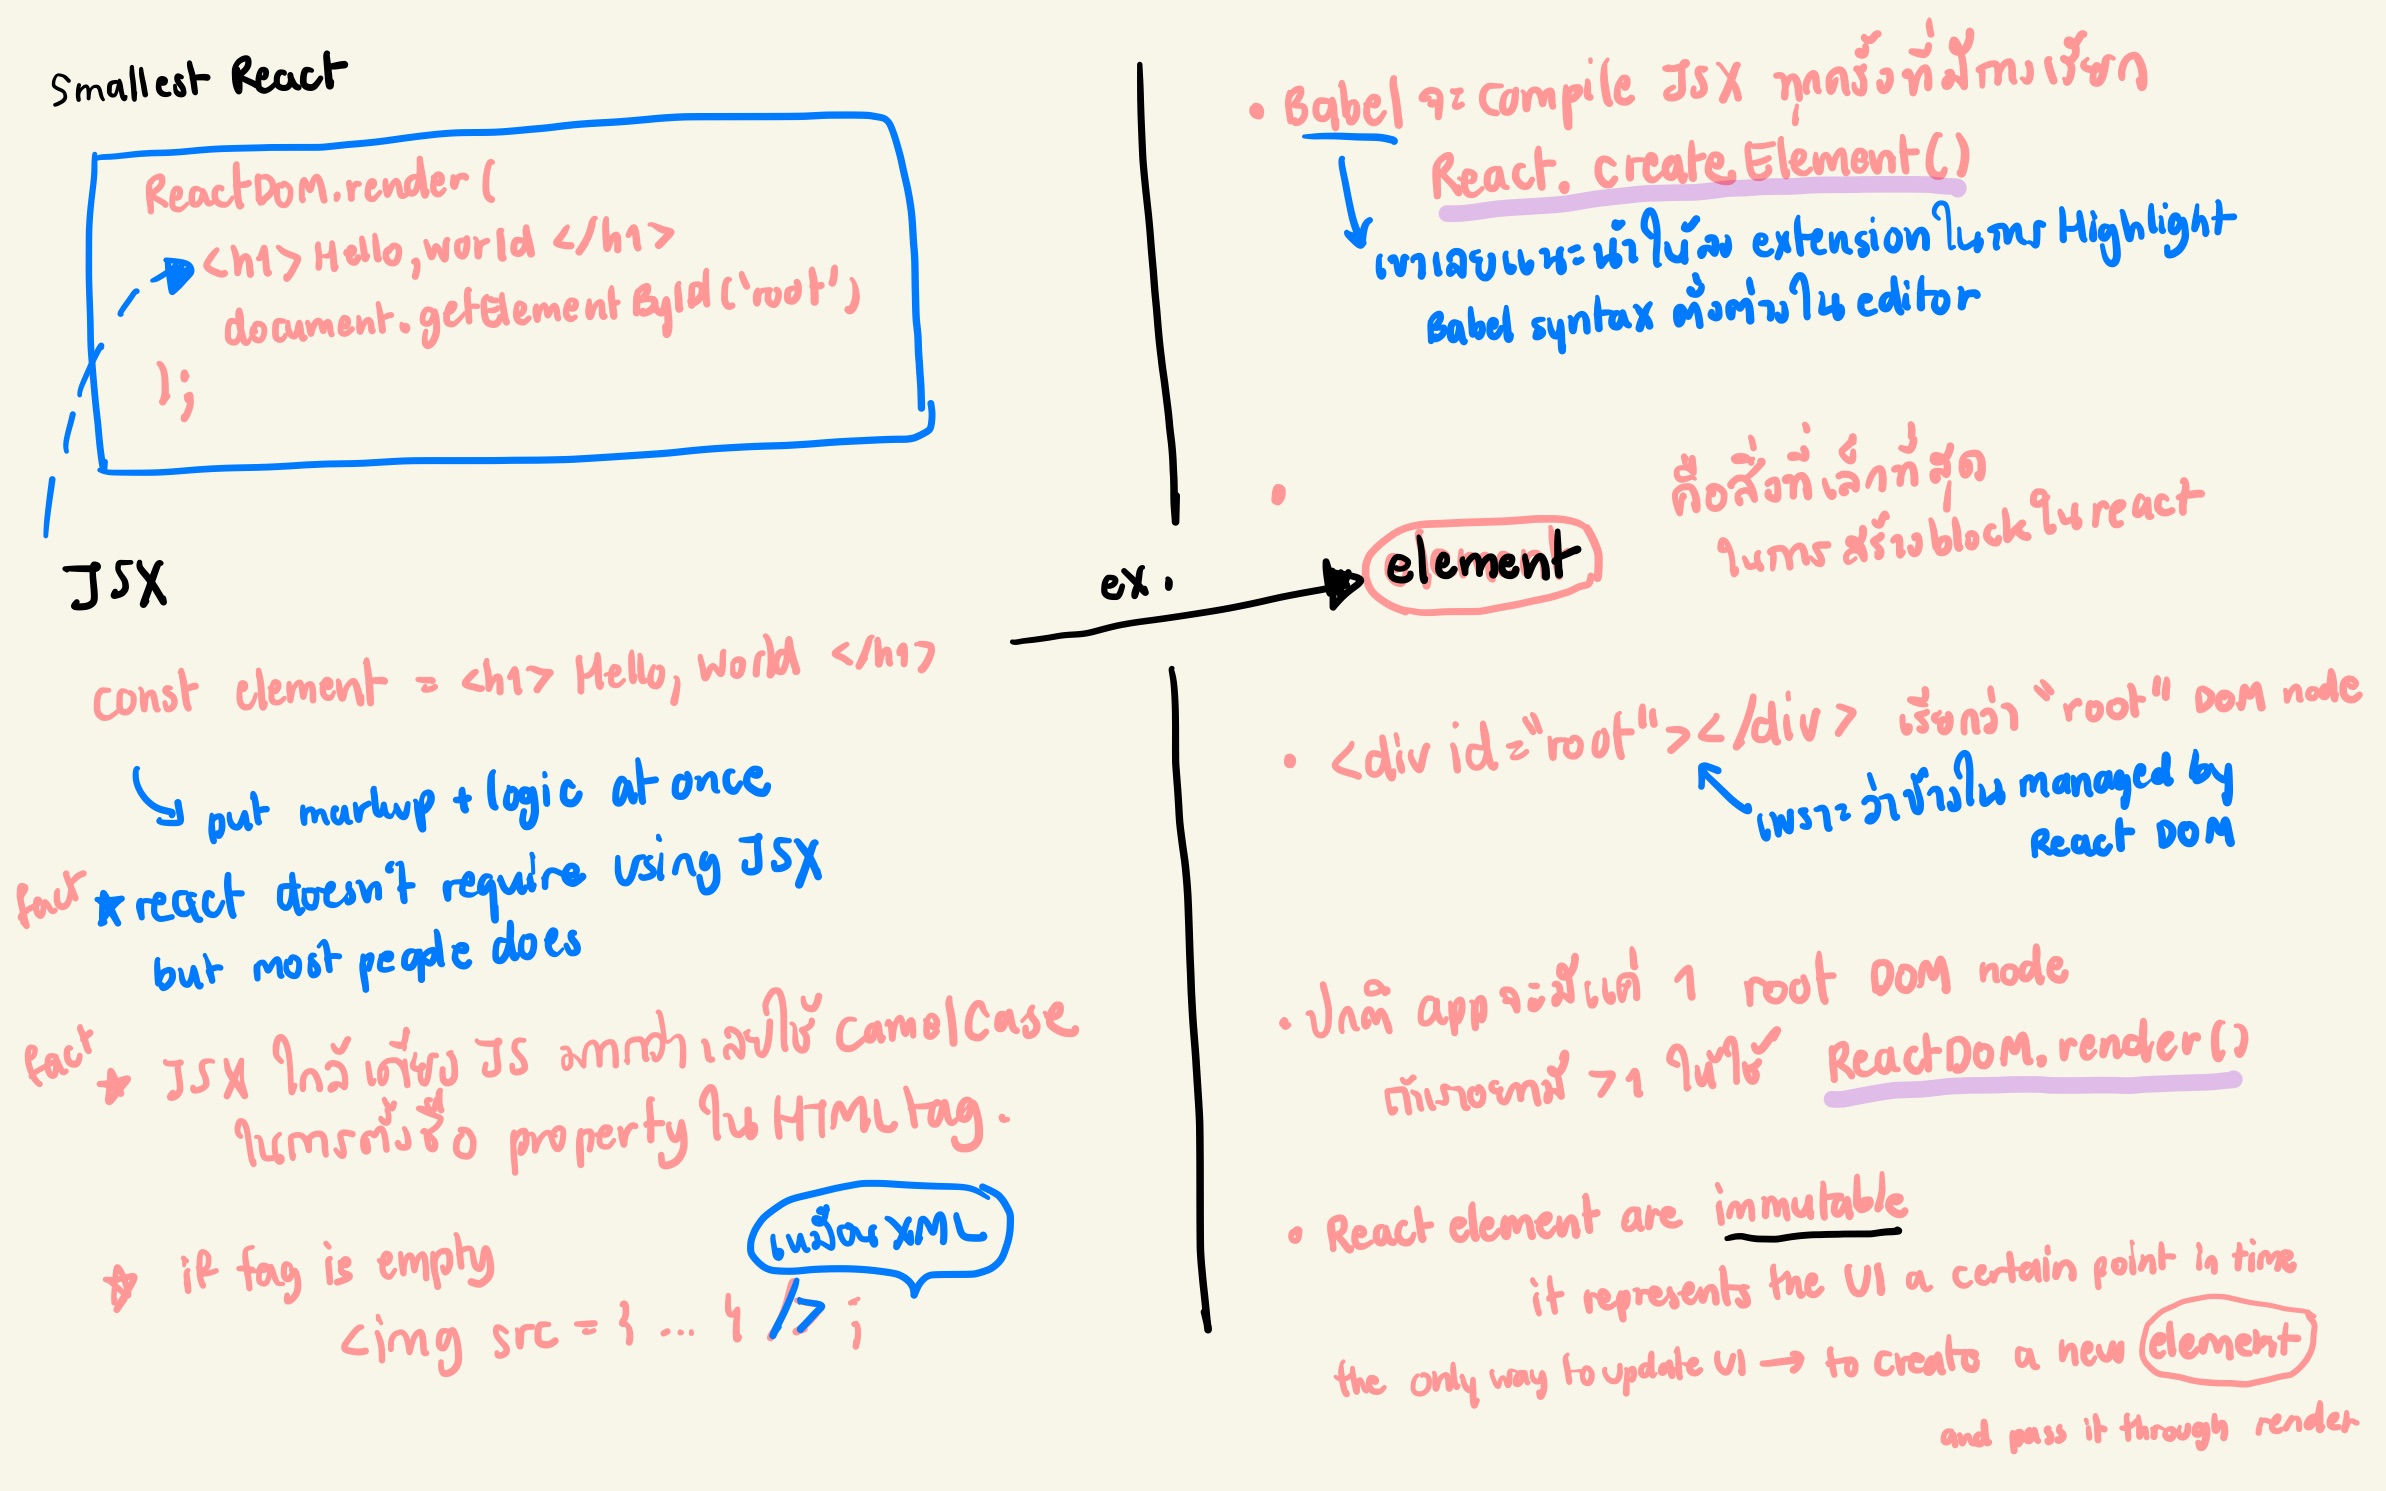 Smallest React
ReactDOM.render (
<h1> Hello, world </h1>
document.getElementById ('root')
);
JSX
const element = <h1> Hello, world </h1>
put markup + logic at once
fact ★ react doesn't require using JSX
but most people does
fact ★ JSX ใกล้เคียง JS มากกว่า เลยใช้ camelCase
ในการตั้งชื่อ property ใน HTML tag.
☆ if tag is empty
<img src = { ... } /> ;
เหมือน XML
• Babel จะ compile JSX ทุกครั้งที่มีการเรียก
React. createElement()
เขาเลยแนะนำให้ลง extension ในการ Highlight
Babel syntax ต่างๆใน editor
•
ex.
element
คือสิ่งที่เล็กที่สุด
ในการสร้าง block ใน react
• <div id="root"></div> เรียกว่า "root" DOM node
เพราะว่าข้างใน managed by
React DOM
• ปกติ app จะมีแค่ 1 root DOM node
ถ้าเราอยากมี >1 ให้ใช้ ReactDOM.render()
• React element are immutable
it represents the UI a certain point in time
the only way to update UI → to create a new element
and pass it through render